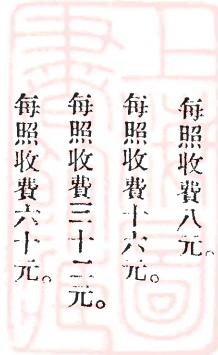 每照收費八元。
每照收費十六元。
每照收費三十二元。
每照收費六十元。